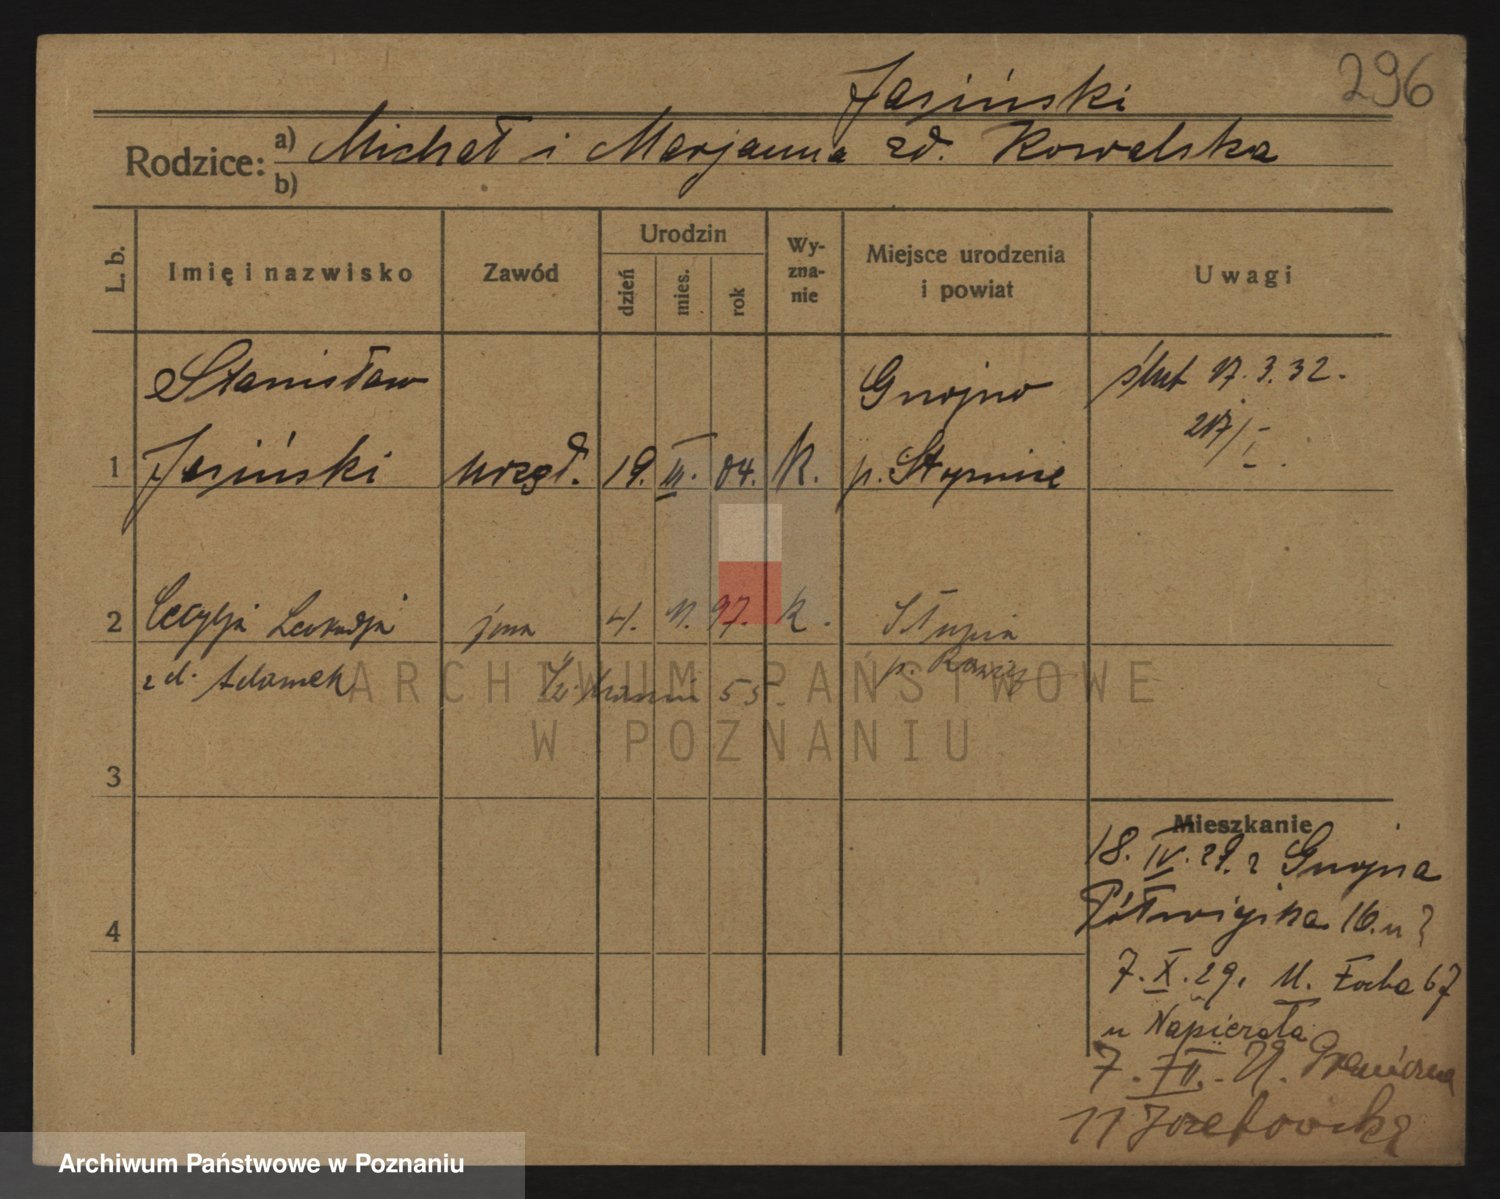 296
Jasiński
Rodzice: a) Michał i Marjanna zd. Kowalska
b)
L. b. Imię i nazwisko Zawód Urodzin dzień mies. rok Wy-zna-nie Miejsce urodzenia i powiat Uwagi
Stanisław Gnojno ślub 17.3.32.
217/I.
1 Jasiński urzęd. 19. III. 04. K. p.
2 Leokadja żona 4. 97. K. Słupia
zd. Adamek p. Rawicz
55.
ARCHIWUM PAŃSTWOWE
W POZNANIU
3
Mieszkanie
18. IV. 29. z Gnojna
4 Półwiejska 16. u
7. X. 29. M. Focha 67
u Napierała
7. XII. 29. Graniczna
11 Józefowska
Archiwum Państwowe w Poznaniu